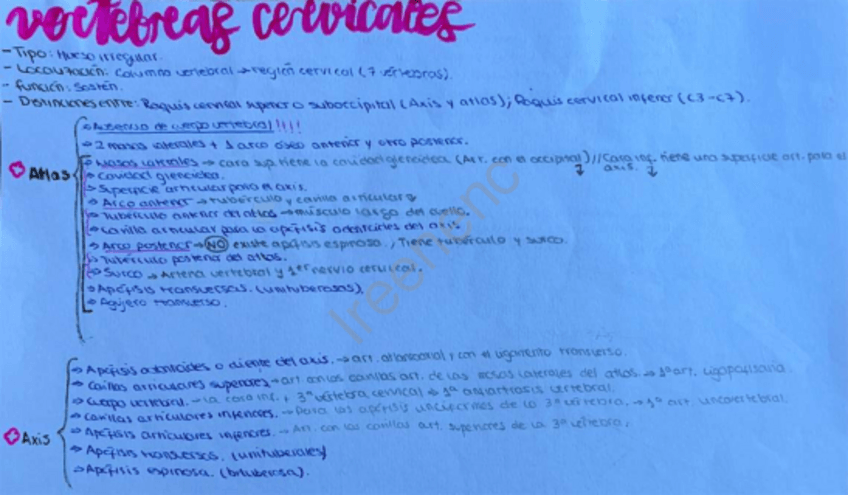 vertebras cervicales
- Tipo: Hueso irregular.
- Localización: Columna vertebral → región cervical (7 vertebras).
- Función: Sostén.
- Distinciones entre: Raquis cervical superior o suboccipital (Axis y atlas); Raquis cervical inferior (C3-C7).
Atlas
Ausencia de cuerpo vertebral!!!!
2 masas laterales + 1 arco óseo anterior y otro posterior.
Masas laterales → cara sup. tiene la cavidad glenoidea (Art. con el occipital) // Cara inf. tiene una superficie art. para el axis.
Cavidad glenoidea.
Superficie articular para el axis.
Arco anterior → tubérculo y carilla articular
Tubérculo anterior del atlas → músculo largo del cuello.
Carilla articular para la apófisis odontoides del axis
Arco posterior → NO existe apófisis espinosa, Tiene tubérculo y surco.
Tubérculo posterior del atlas.
Surco → Arteria vertebral y 1er nervio cervical.
Apófisis transversas. (unituberosas).
Agujero transverso.
Axis
Apófisis odontoides o diente del axis. → art. atlantoaxial y con el ligamento transverso.
Carillas articulares superiores → art. con las carillas art. de las masas laterales del atlas. → 1ª art.
Cuerpo vertebral. → La cara inf. + 3ª vértebra cervical → 1ª anfiartrosis vertebral.
Carillas articulares inferiores. → Para las apófisis unciformes de la 3ª vértebra. → 1ª art. uncovertebral.
Apófisis articulares inferiores. → Art. con las carillas art. superiores de la 3ª vértebra.
Apófisis transversas. (unituberales)
Apófisis espinosa. (bituberosa).
Ireencnc